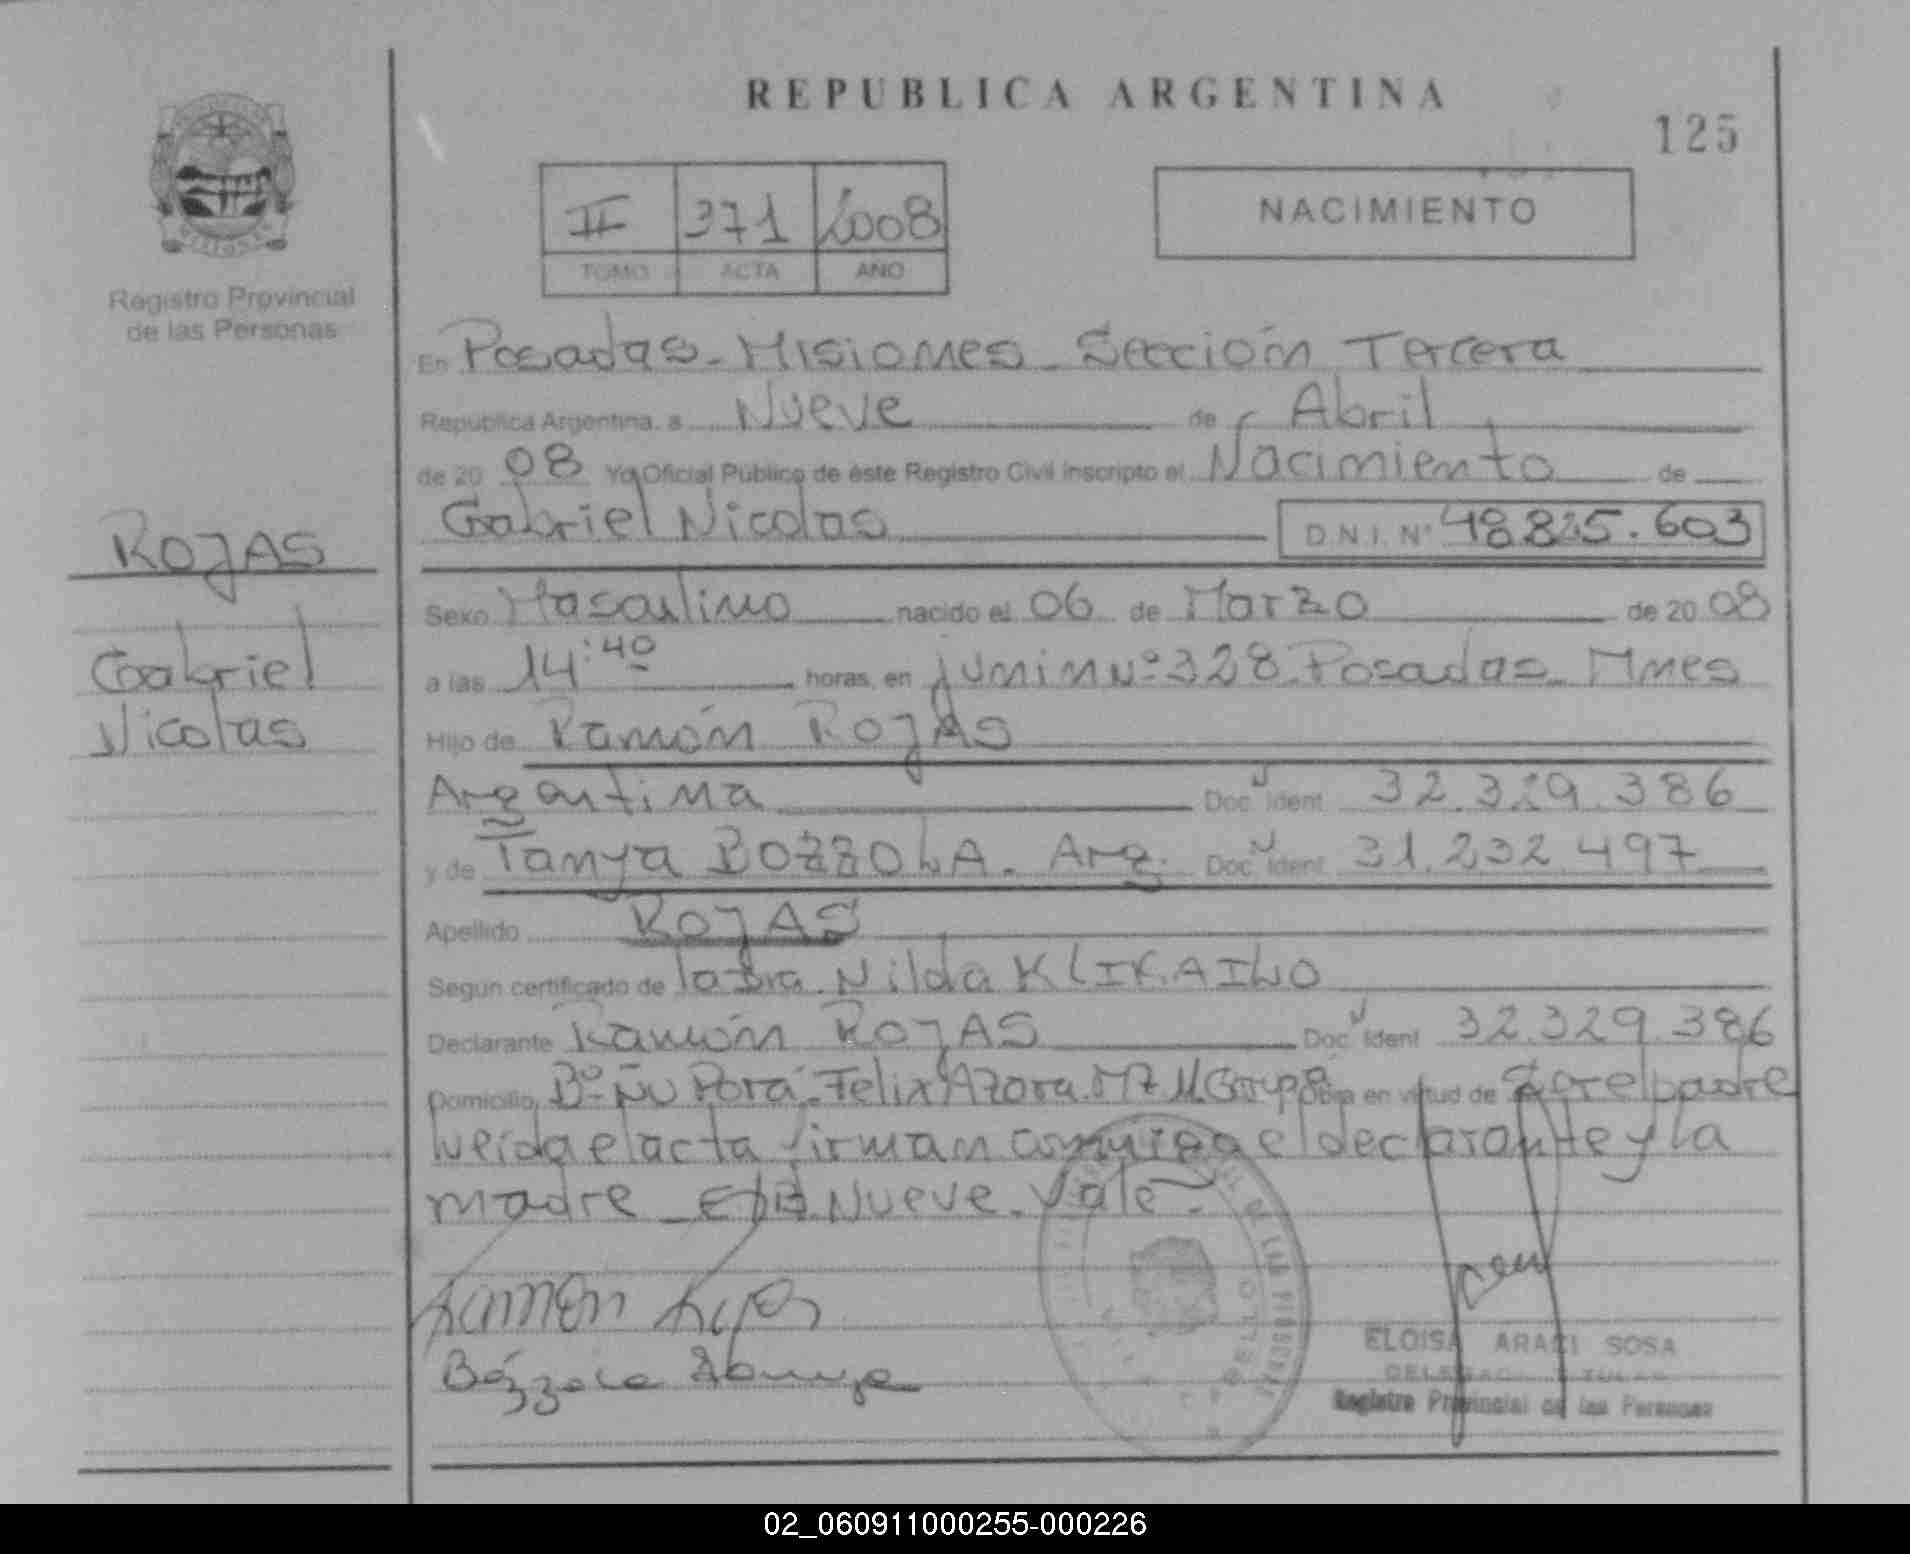 REPUBLICA ARGENTINA
125
II 371 2008
TOMO ACTA AÑO
NACIMIENTO
Registro Provincial
de las Personas
En Posadas - Misiones - Sección Tercera
República Argentina, a Nueve de Abril
de 20 08 Yo Oficial Público de éste Registro Civil inscripto el Nacimiento de
Gabriel Nicolas D.N.I. Nº 48.825.603
ROJAS
Gabriel
Nicolas
Sexo Masculino nacido el 06 de Marzo de 20 08
a las 14:40 horas, en Junin Nº 328. Posadas - Mnes
Hijo de Ramón ROJAS
Argentina Doc. Ident. 32.329.386
y de Tanya BOZZOLA. Arg. Doc. Ident. 31.232.497
Apellido ROJAS
Según certificado de la Dra. Nilda KLIKAILO
Declarante Ramón ROJAS Doc. Ident. 32.329.386
Domicilio Bº Ñu Porá. Felix Azara. MZ Garupá Obra en virtud de Ser el padre
Leída el acta firman conmigo el declarante y la
madre - Nueve - Vale -
Ramón Rojas
Bozzola Tanya
ELOISA ARACI SOSA
DELEGADA TITULAR
Registro Provincial de las Personas
02_060911000255-000226